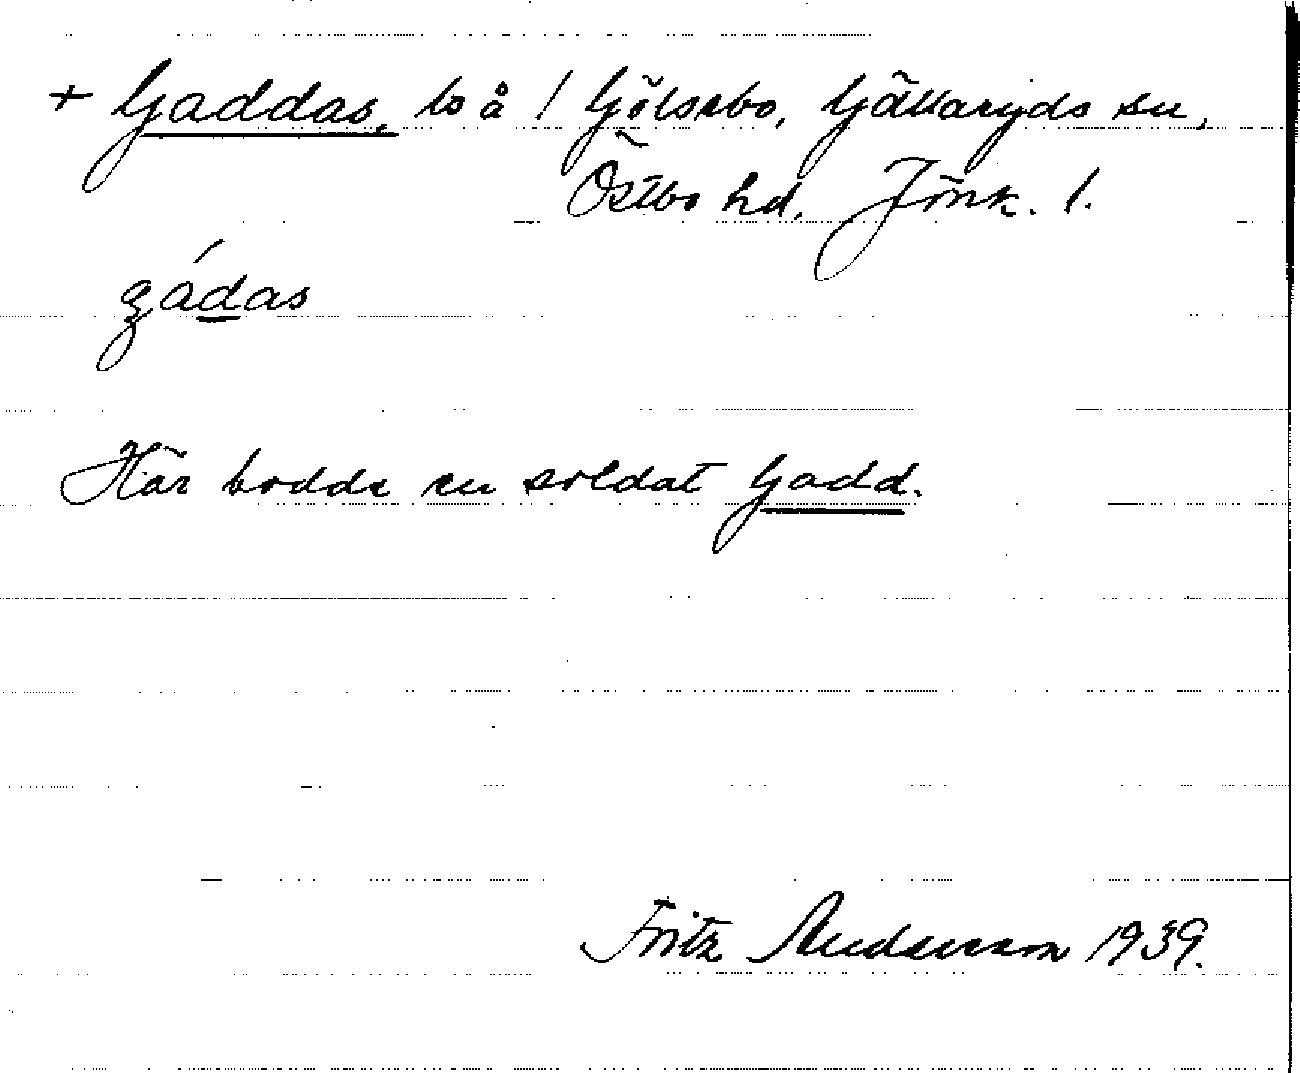 + Gaddas, to å 1 Gölsebo, Gällaryds sn,
Östbo hd, Jönk. l.
gádas
Här bodde en soldat Gadd.
Fritz Andersson 1939.